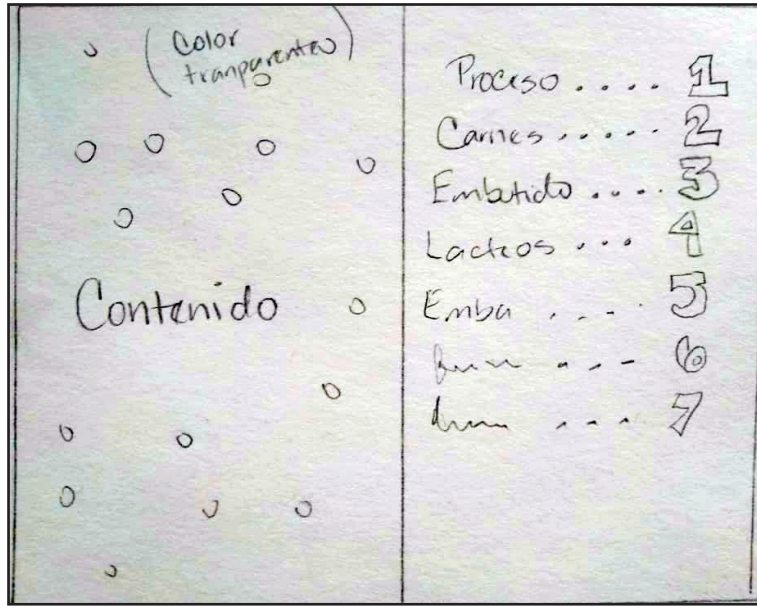 (Color
tranparentes)
Contenido
Proceso .... 1
Carnes ..... 2
Embutido .... 3
Lacteos ... 4
Emba .... 5
... 6
... 7